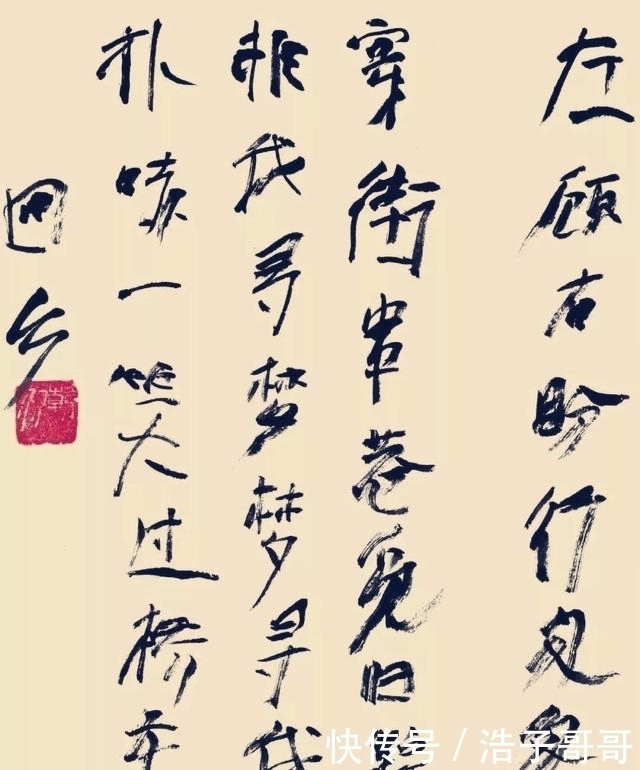 左顾右盼行且
穿街串巷觅旧
非我寻梦梦寻我
扑哧一笑大过桥
回乡
快传号 / 浩子哥哥